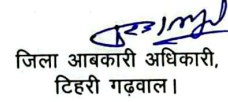 जिला आबकारी अधिकारी,
टिहरी गढ़वाल।